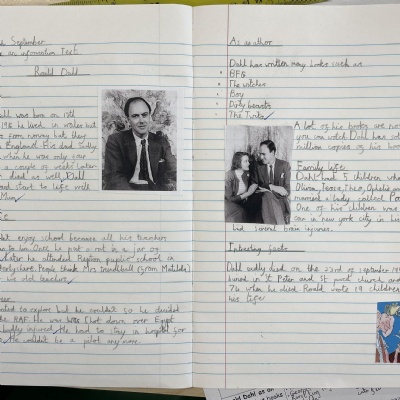 September
an information Text
Roald Dahl
was born on 13th
he lived in wales but
from norway but they
England. His dad sadly
when he was only four
a couple of weeks later
died as well. Dahl
start to life with
Mum
not enjoy school because all his teachers
to him. Once he put a rat in a jar of
later he attended Repton public school in
People think Mrs trunchball (from Matilda)
his old teachers
wanted to explore but he couldn't so he decided
the RAF. He was shot down over Egypt
badly injured. He had to stay in hospital for
He couldn't be a pilot any more.
As author
Dahl has written many books such as
BFG
The witches
Boy
Dirty beasts
The Twits
A lot of his books are now
you can watch Dahl has sold
million copies of his books
Family life
Dahl had 5 children who
Olivia, Tessa, Theo, Ophelia and
married a lady called
One of his children was
car in new york city in his
had several brain injures.
Intresting facts
Dahl sadly died on the 22rd of september
buried in St Peter and St paul church and
76 when he died Roald wrote 19 children
his life